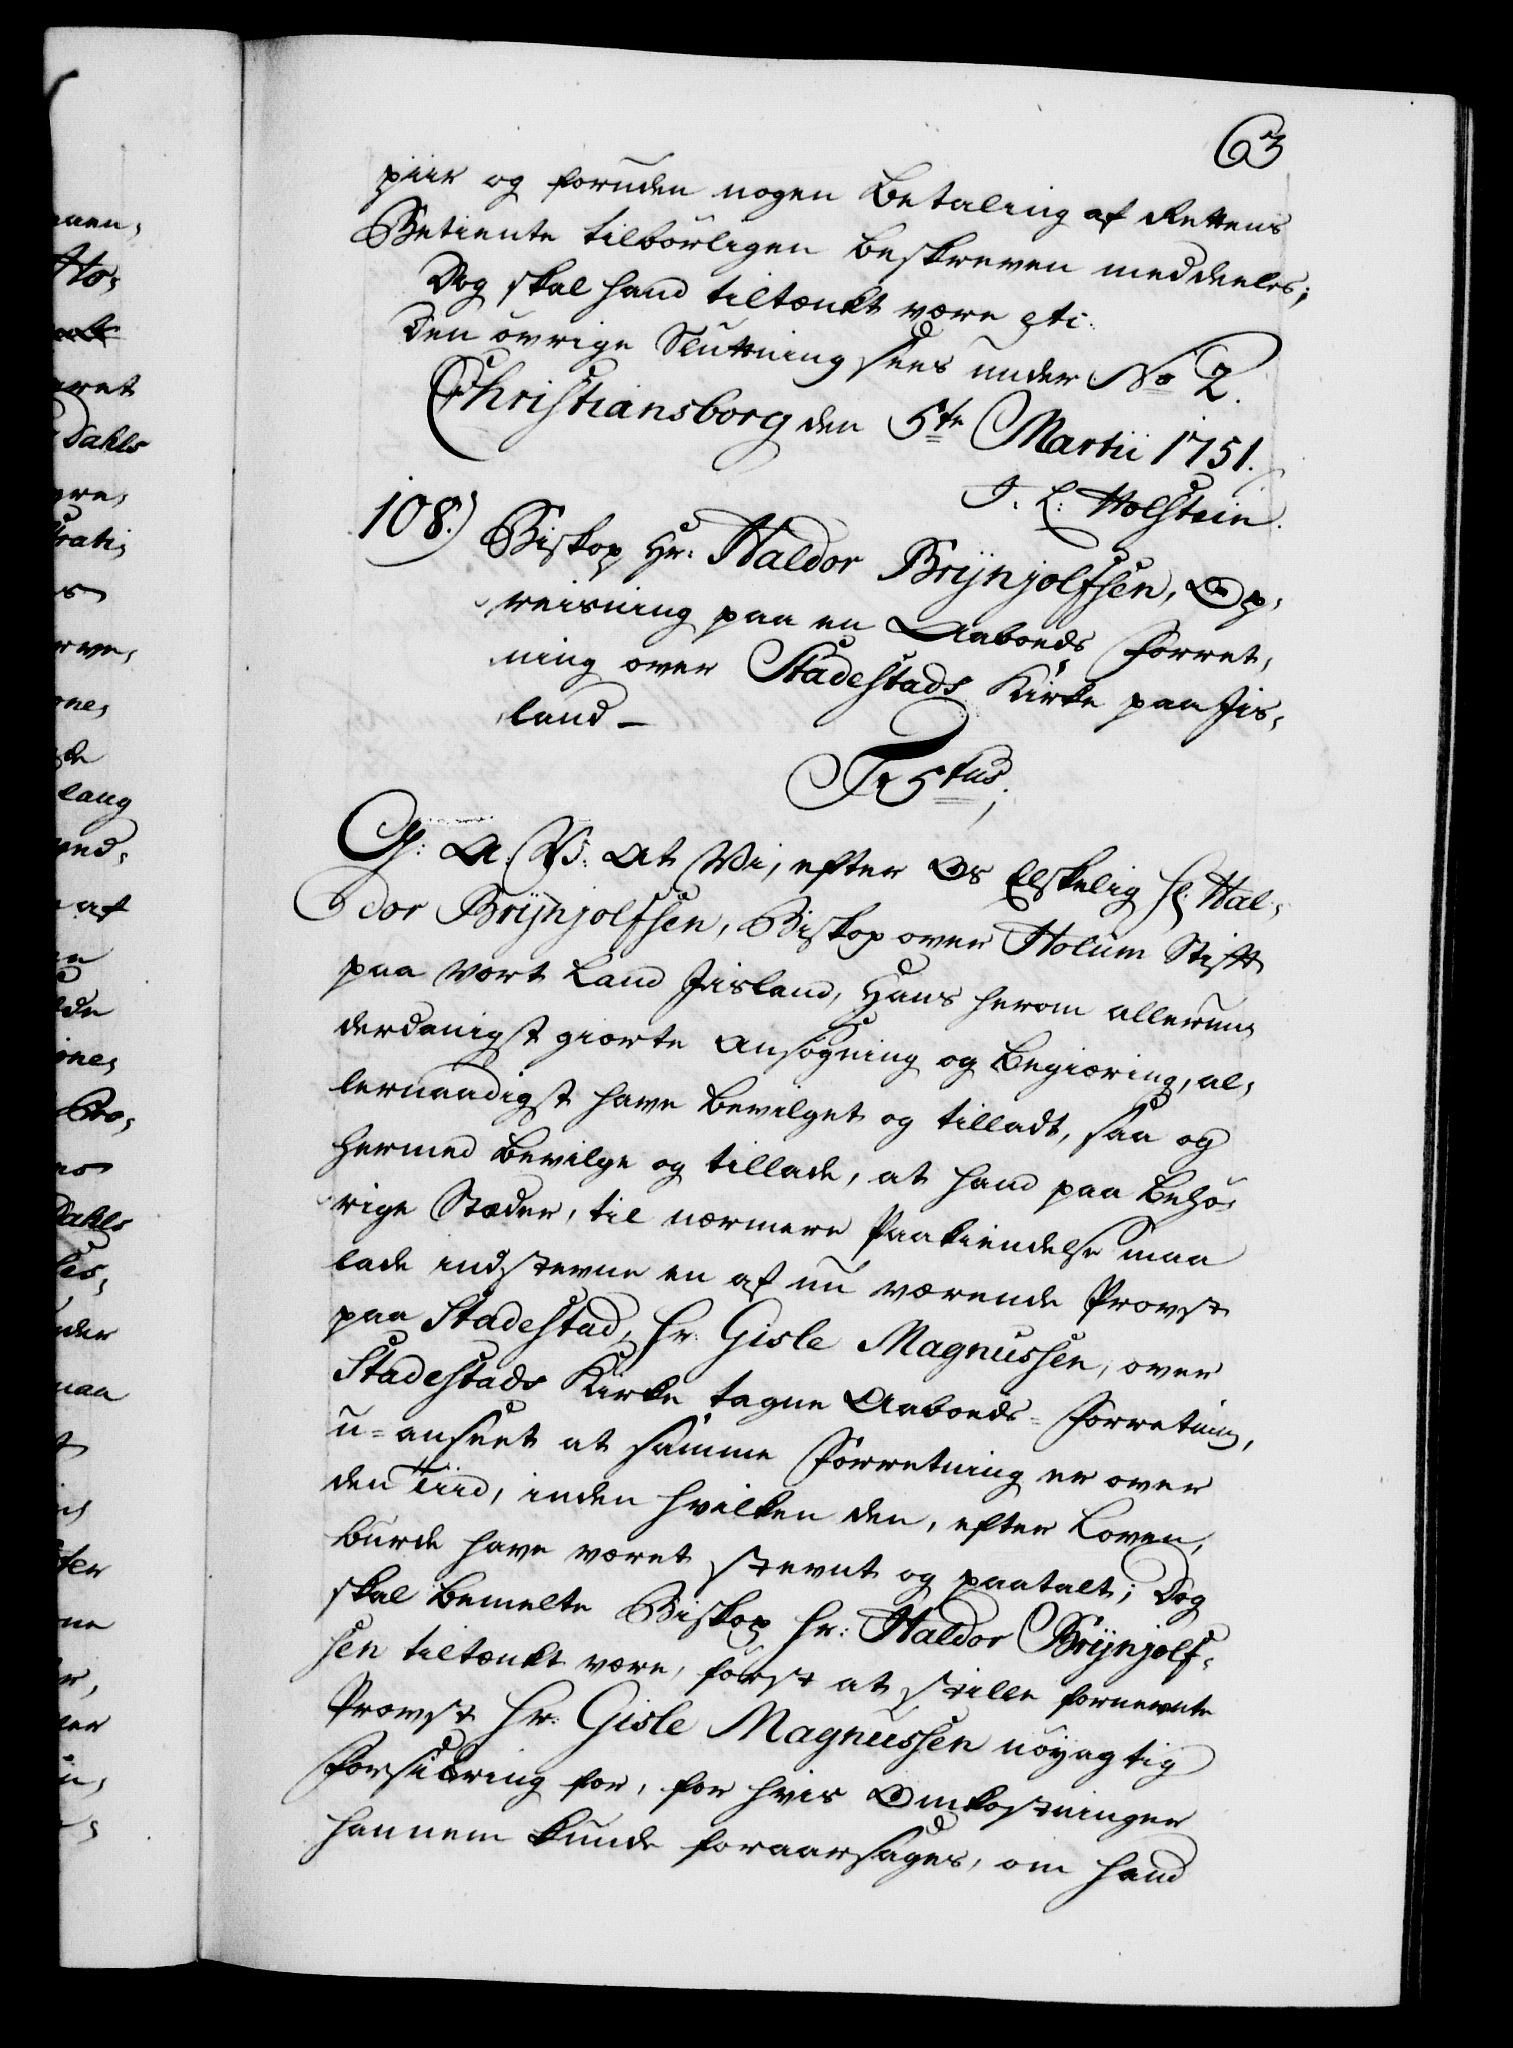 63
piir og foruden nogen Betaling af Rettens
Betiente tilbörligen beskreven meddeeles;
Dog skal hand tiltænkt være etc:
Den övrige Sluttning sees under No 2.
Christiansborg den 5te Martii 1751.
J. L: Holstein.
108.) Biskop Hr: Haldor Brÿnjolfsen, Op-
reisning paa en Aaboeds Forret-
ning over Stadestads Kirke paa Jis-
land –
Fr 5tus;
G: A: V: At Vi, efter Os Elskelig Hr: Hal-
dor Brÿnjolfsen, Biskop over Holum Stift
paa vort Land Jisland, Hans herom allerun-
derdanigst giorte Ansögning og Begiæring, al-
lernaadigst have bevilget og tilladt, saa og
hermed bevilge og tillade, at hand paa behö-
rige Stæder, til nærmere Paakiendelse maa
lade indstevne en af nu værende Provst
paa Stadestad, Hr: Gisle Magnussen, over
Stadestads Kirke tagne Aaboeds-Forretning,
u-anseet at samme Forretning er over
den Tiid, inden hvilken den, efter Loven,
burde have været stevnt og paatalt; Dog
skal bemelte Biskop Hr: Haldor Brÿnjolf-
sen tiltænkt være, först at stille fornevnte
Provst Hr: Gisle Magnussen nöyagtig
Forsikring for, for hvis Omkostninger
hannem kunde foraarsages, om hand